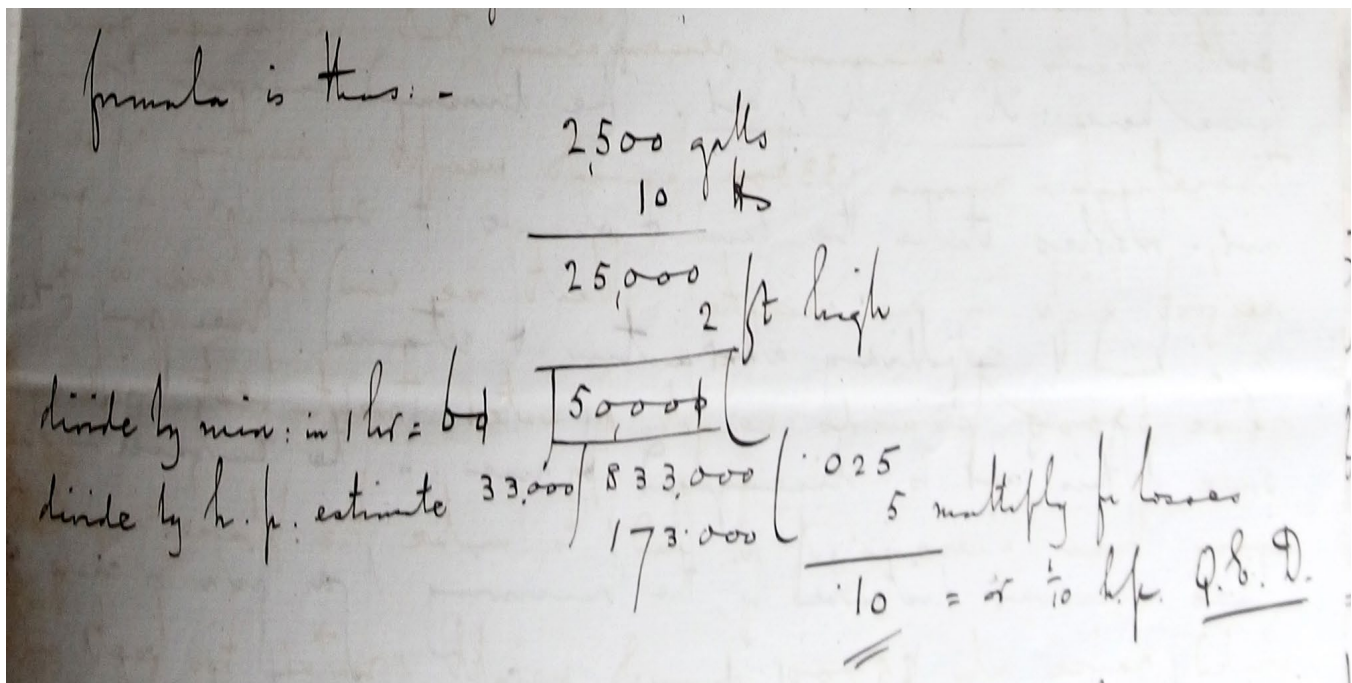 formula is thus:-
2,500 galls
10 lbs
25,000
2 ft high
divide by min: in 1 hr = 60 50,000
divide by h.p. estimate 33,000 833,000 .025
173.000 5 multiply for losses
.10 = or 1/10 h.p. Q.E.D.